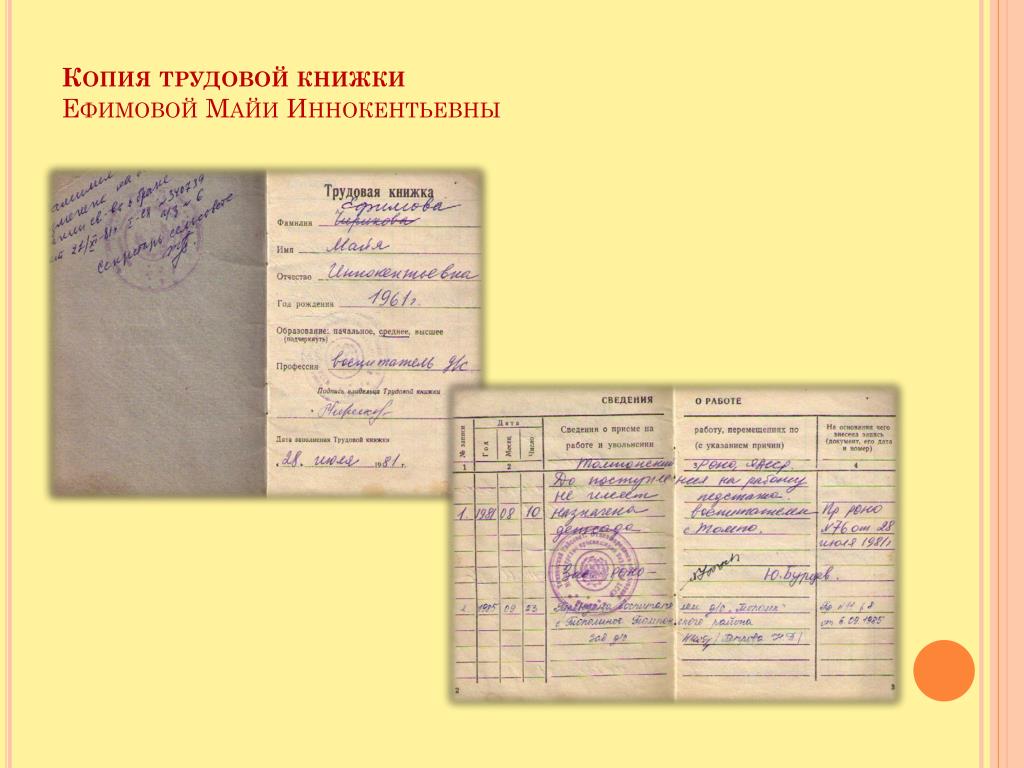 Копия трудовой книжки
Ефимовой Майи Иннокентьевны
Трудовая книжка
Ефимова
Фамилия Чирикова
Имя Майя
Отчество Иннокентьевна
Год рождения 1961г.
Образование: начальное, среднее, высшее
(подчеркнуть)
Профессия воспитатель д/с
Подпись владельца Трудовой книжки
Дата заполнения Трудовой книжки
28. июля 1981г.
№ 340739
секретарь сельсовета
СВЕДЕНИЯ О РАБОТЕ
№ записи
Дата
Год
Месяц
Число
Сведения о приеме на работу, перемещениях по
работе и увольнении (с указанием причин)
На основании чего
внесена запись
(документ, его дата
и номер)
1 2 3 4
Томпонский РОНО ЯАССР.
До поступления на работу
не имеет педстажа.
1. 1981 08 10 назначена воспитателем Пр роно
детсада с. Томпо. №76 от 28
июля 1981г
Зав. роно Ю. Бурцев.
2 1985 09 23 воспитателем д/с
с Тополиное Томпонского района от 6.09.1985
Зав д/с
2 3